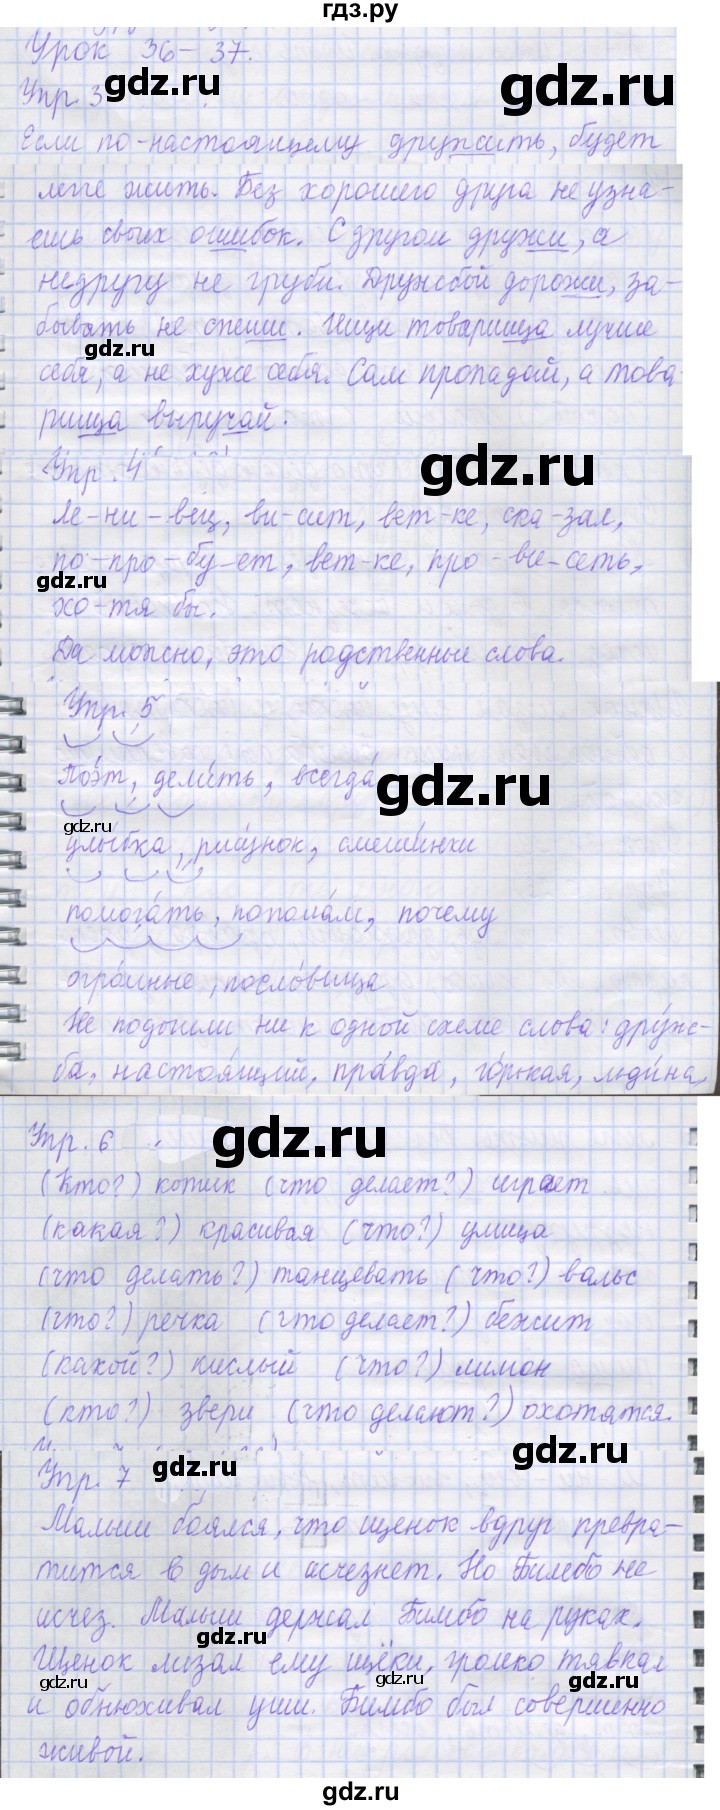 гдз.ру
Урок 36-37.
Упр. 3
gdz.ru
gdz.ru
Если по-настоящему дружить, будет
легче жить. Без хорошего друга не узна-
ешь своих ошибок. С другом дружи, а
недругу не груби. Дружбой дорожи, за-
бывать не спеши. Ищи товарища лучше
gdz.ru
себя, а не хуже себя. Сам пропадай, а това
рища выручай.
Упр. 4
gdz.ru
Ле-ни-вец, ви-сит, вет-ке, ска-зал,
по-про-бу-ет, вет-ке, про-ви-сеть,
gdz.ru
хо-тя бы.
Да можно, это родственные слова.
Упр. 5
Поэ́т, дели́ть, всегда́
gdz.ru
gdz.ru
улы́бка, рису́нок, смеши́нки
помога́ть, попола́м, почему
огро́мные, посло́вица
Не подошли ни к одной схеме слова: дру́ж-
ба, настоя́щий, пра́вда, го́рькая, льди́на,
Упр. 6
gdz.ru
(Кто?) котик (что делает?) играет
(какая?) красивая (что?) улица
(что делать?) танцевать (что?) вальс
(что?) речка (что делает?) бежит
(какой?) кислый (что?) лимон
(кто?) звери (что делают?) охотятся.
gdz.ru
Упр. 7
gdz.ru
Малыш боялся, что щенок вдруг превра-
тится в дым и исчезнет. Но Бимбо не
исчез. Малыш держал Бимбо на руках.
gdz.ru
Щенок лизал ему щёки, громко тявкал
gdz.ru
gdz.ru
и обнюхивал уши. Бимбо был совершенно
живой.
gdz.ru